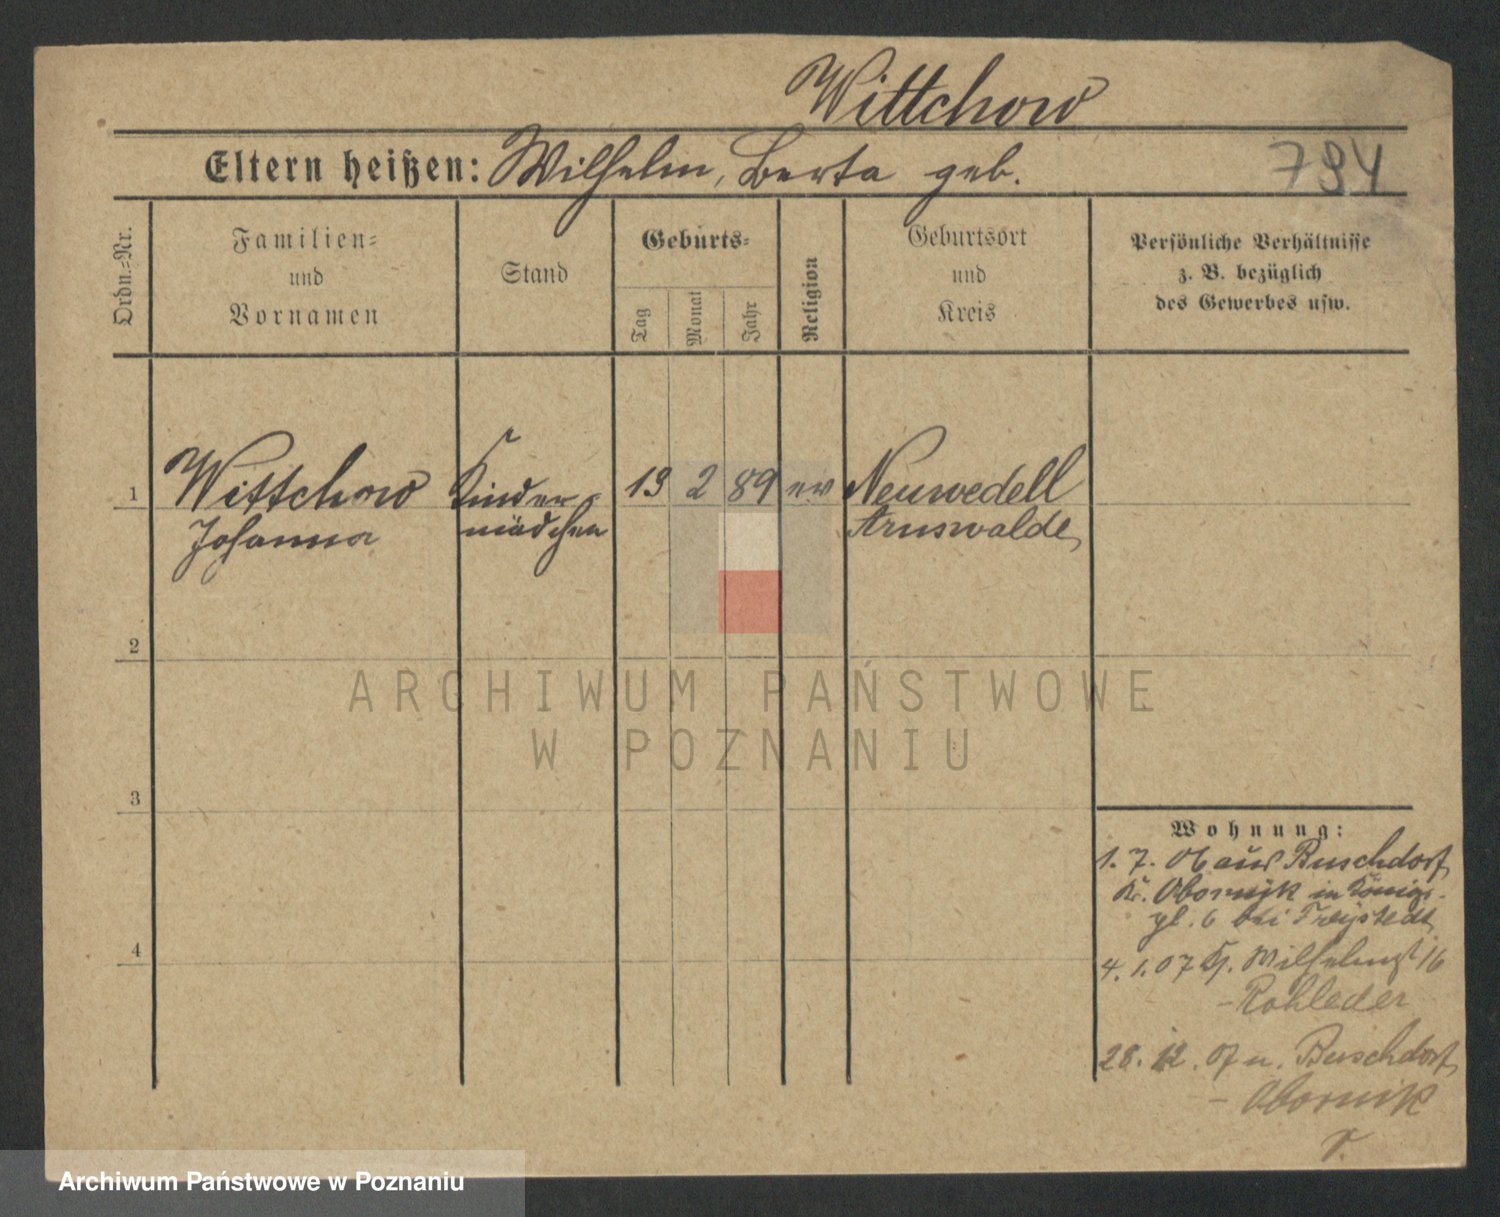 Wittchow
Eltern heißen: Wilhelm, Berta geb.
794
Ordn.=Nr.
Familien=
und
Vornamen
Stand
Geburts=
Tag
Monat
Jahr
Religion
Geburtsort
und
Kreis
Persönliche Verhältnisse
z. B. bezüglich
des Gewerbes usw.
1 Wittchow Kinder 13 2 89 ev Neuwedell
Johanna mädchen Arnswalde
2
3
4
ARCHIWUM PAŃSTWOWE
W POZNANIU
Wohnung:
1. 7. 06 aus Buschdorf
Kr. Obornik in Königs
pl. 6 bei
4. 1. 07 Wilhelmst 16
- Rohleder
28. 12. 07 n. Buschdorf
- Obornik
Archiwum Państwowe w Poznaniu